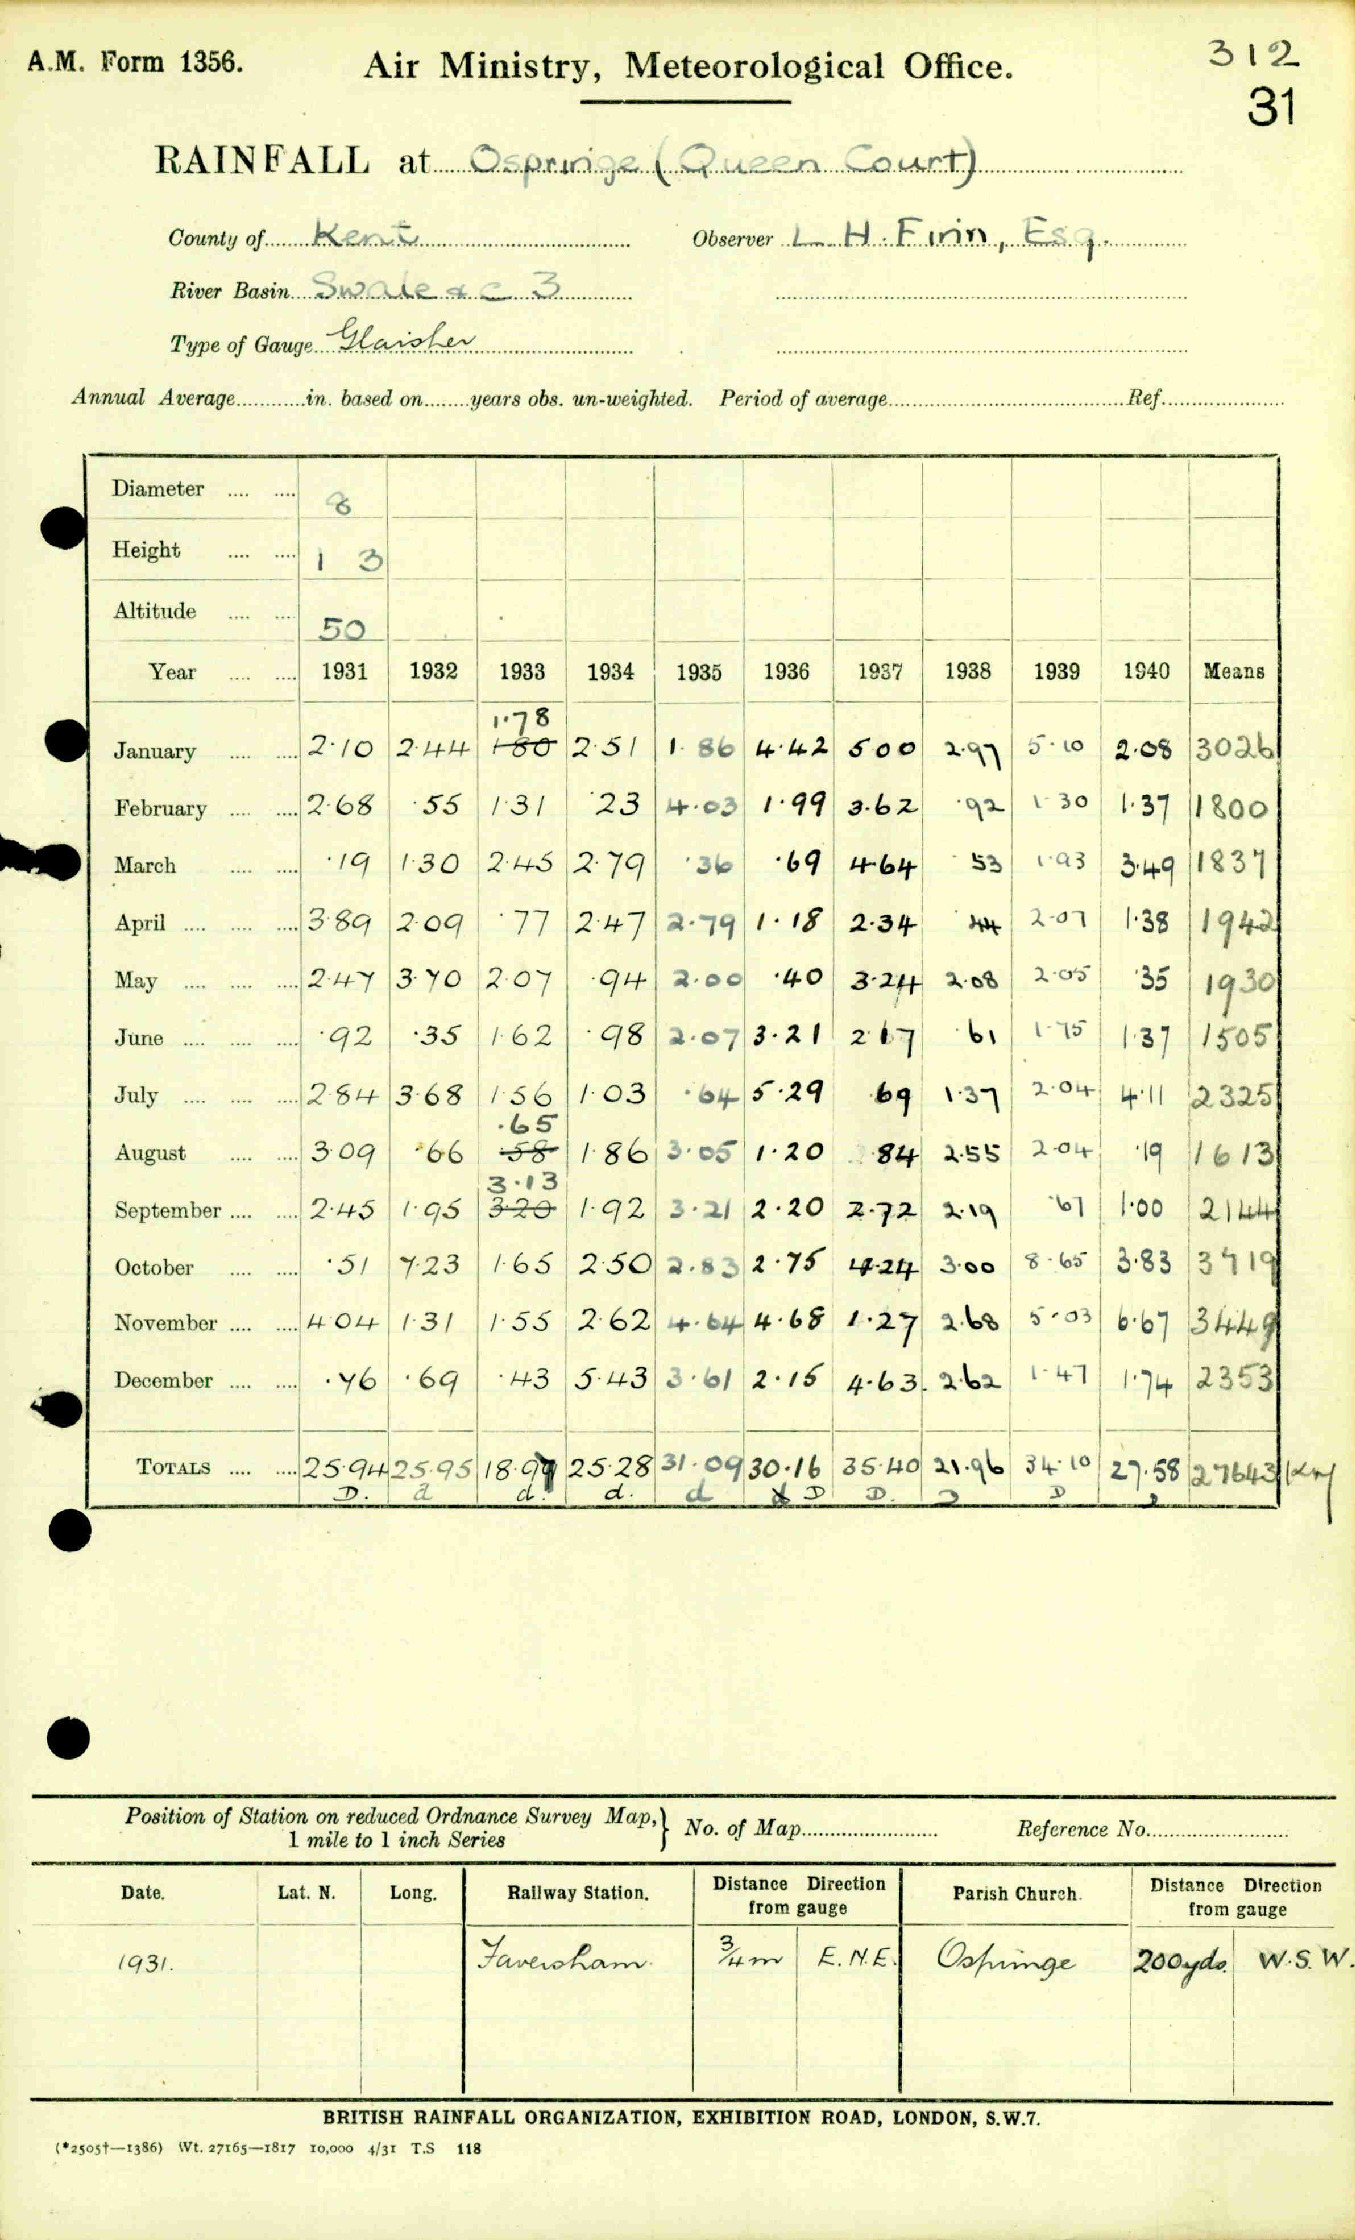 A.M. Form 1356.
Air Ministry, Meteorological Office.
312
31
RAINFALL at Ospringe (Queen Court)
County of Kent Observer L. H. Finn, Esq.
River Basin Swale &c 3
Type of Gauge Glaisher
Annual Average in. based on years obs. un-weighted. Period of average Ref.
Diameter 8
Height 1 3
Altitude 50
Year 1931 1932 1933 1934 1935 1936 1937 1938 1939 1940 Means
1.78
January 2.10 2.44 1.80 2.51 1.86 4.42 5.00 2.97 5.10 2.08 3026
February 2.68 .55 1.31 .23 4.03 1.99 3.62 .92 1.30 1.37 1800
March .19 1.30 2.45 2.79 .36 .69 4.64 .53 1.93 3.49 1837
April 3.89 2.09 .77 2.47 2.79 1.18 2.34 .44 2.07 1.38 1942
May 2.47 3.70 2.07 .94 2.00 .40 3.24 2.08 2.05 .35 1930
June .92 .35 1.62 .98 2.07 3.21 2.17 .61 1.75 1.37 1505
July 2.84 3.68 1.56 1.03 .64 5.29 .69 1.37 2.04 4.11 2325
.65
August 3.09 .66 .58 1.86 3.05 1.20 .84 2.55 2.04 .19 1613
3.13
September 2.45 1.95 3.20 1.92 3.21 2.20 2.72 2.19 .67 1.00 2144
October .51 7.23 1.65 2.50 2.83 2.75 4.24 3.00 8.65 3.83 3719
November 4.04 1.31 1.55 2.62 4.64 4.68 1.27 2.68 5.03 6.67 3449
December .76 .69 .43 5.43 3.61 2.15 4.63 2.62 1.47 1.74 2353
TOTALS 25.94 25.95 18.97 25.28 31.09 30.16 35.40 21.96 34.10 27.58 27643
D. d d. d. d D D. D D
Position of Station on reduced Ordnance Survey Map, } No. of Map Reference No.
1 mile to 1 inch Series
Date. Lat. N. Long. Railway Station. Distance Direction from gauge Parish Church. Distance Direction from gauge
1931. Faversham 3/4 m E.N.E. Ospringe 200 yds. W.S.W.
BRITISH RAINFALL ORGANIZATION, EXHIBITION ROAD, LONDON, S.W.7.
(*2505†—1386) Wt. 27165—1817 10,000 4/31 T.S 118